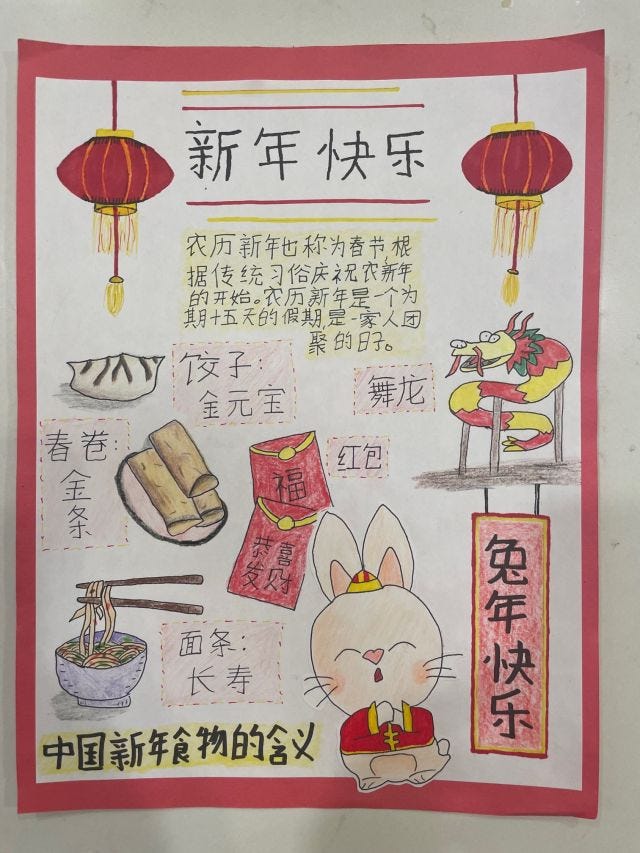 新年快乐
农历新年也称为春节,根
据传统习俗庆祝农新年
的开始。农历新年是一个为
期十五天的假期,是一家人团
聚的日子。
饺子:
金元宝
舞龙
春卷:
金
条
红包
福
恭喜
发财
面条:
长寿
兔年快乐
中国新年食物的含义